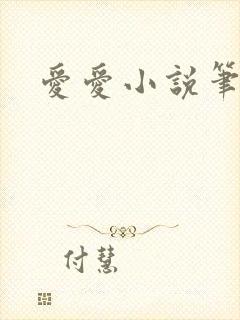 愛愛小説筆
付慧